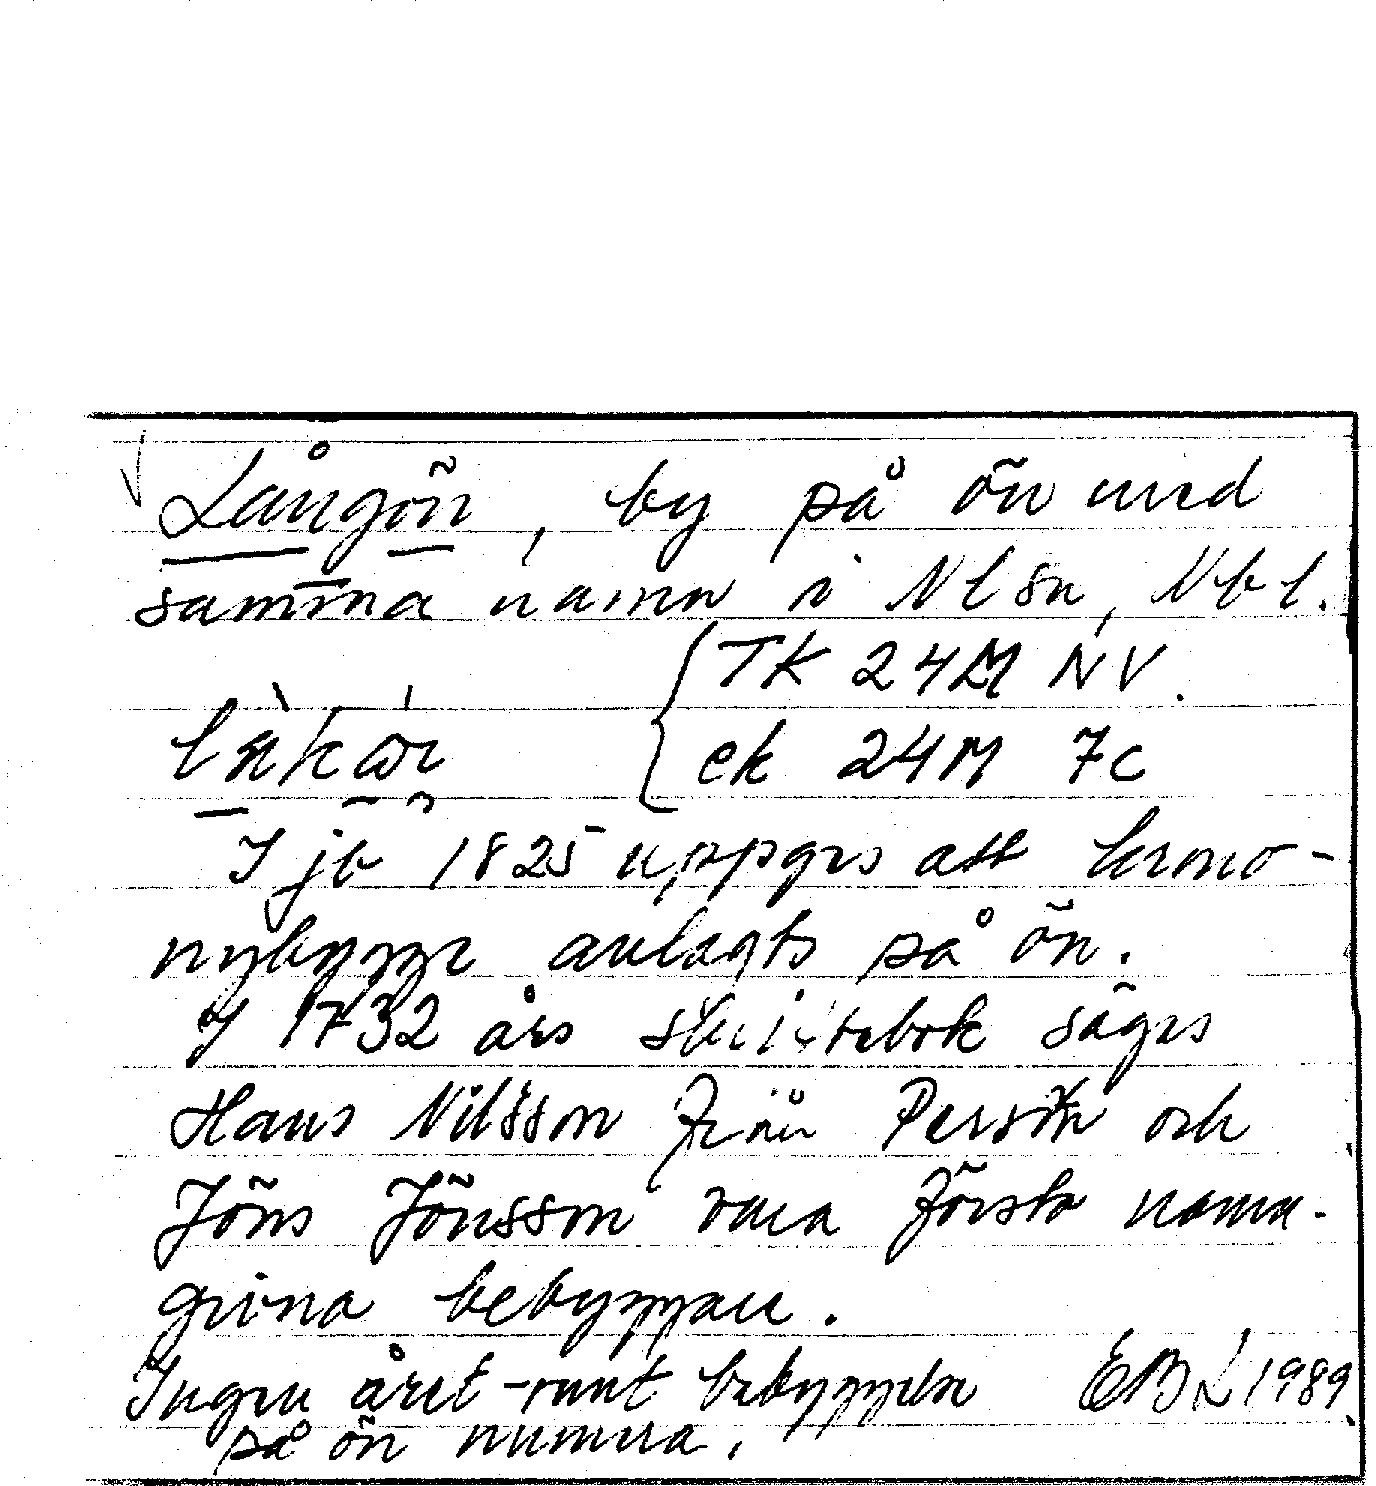 Långön, by på ön med
samma namn i Nl sn, Nbl.
TK 24M NV.
ek 24M 7c
I jb 1825 uppges att krono-
nybygge anlagts på ön.
I 1732 års skattebok säges
Hans Nilsson från Persön och
Jöns Jönsson vara första namn-
givna bebyggare.
Ingen året-runt bebyggelse EBL 1989
på ön numera.